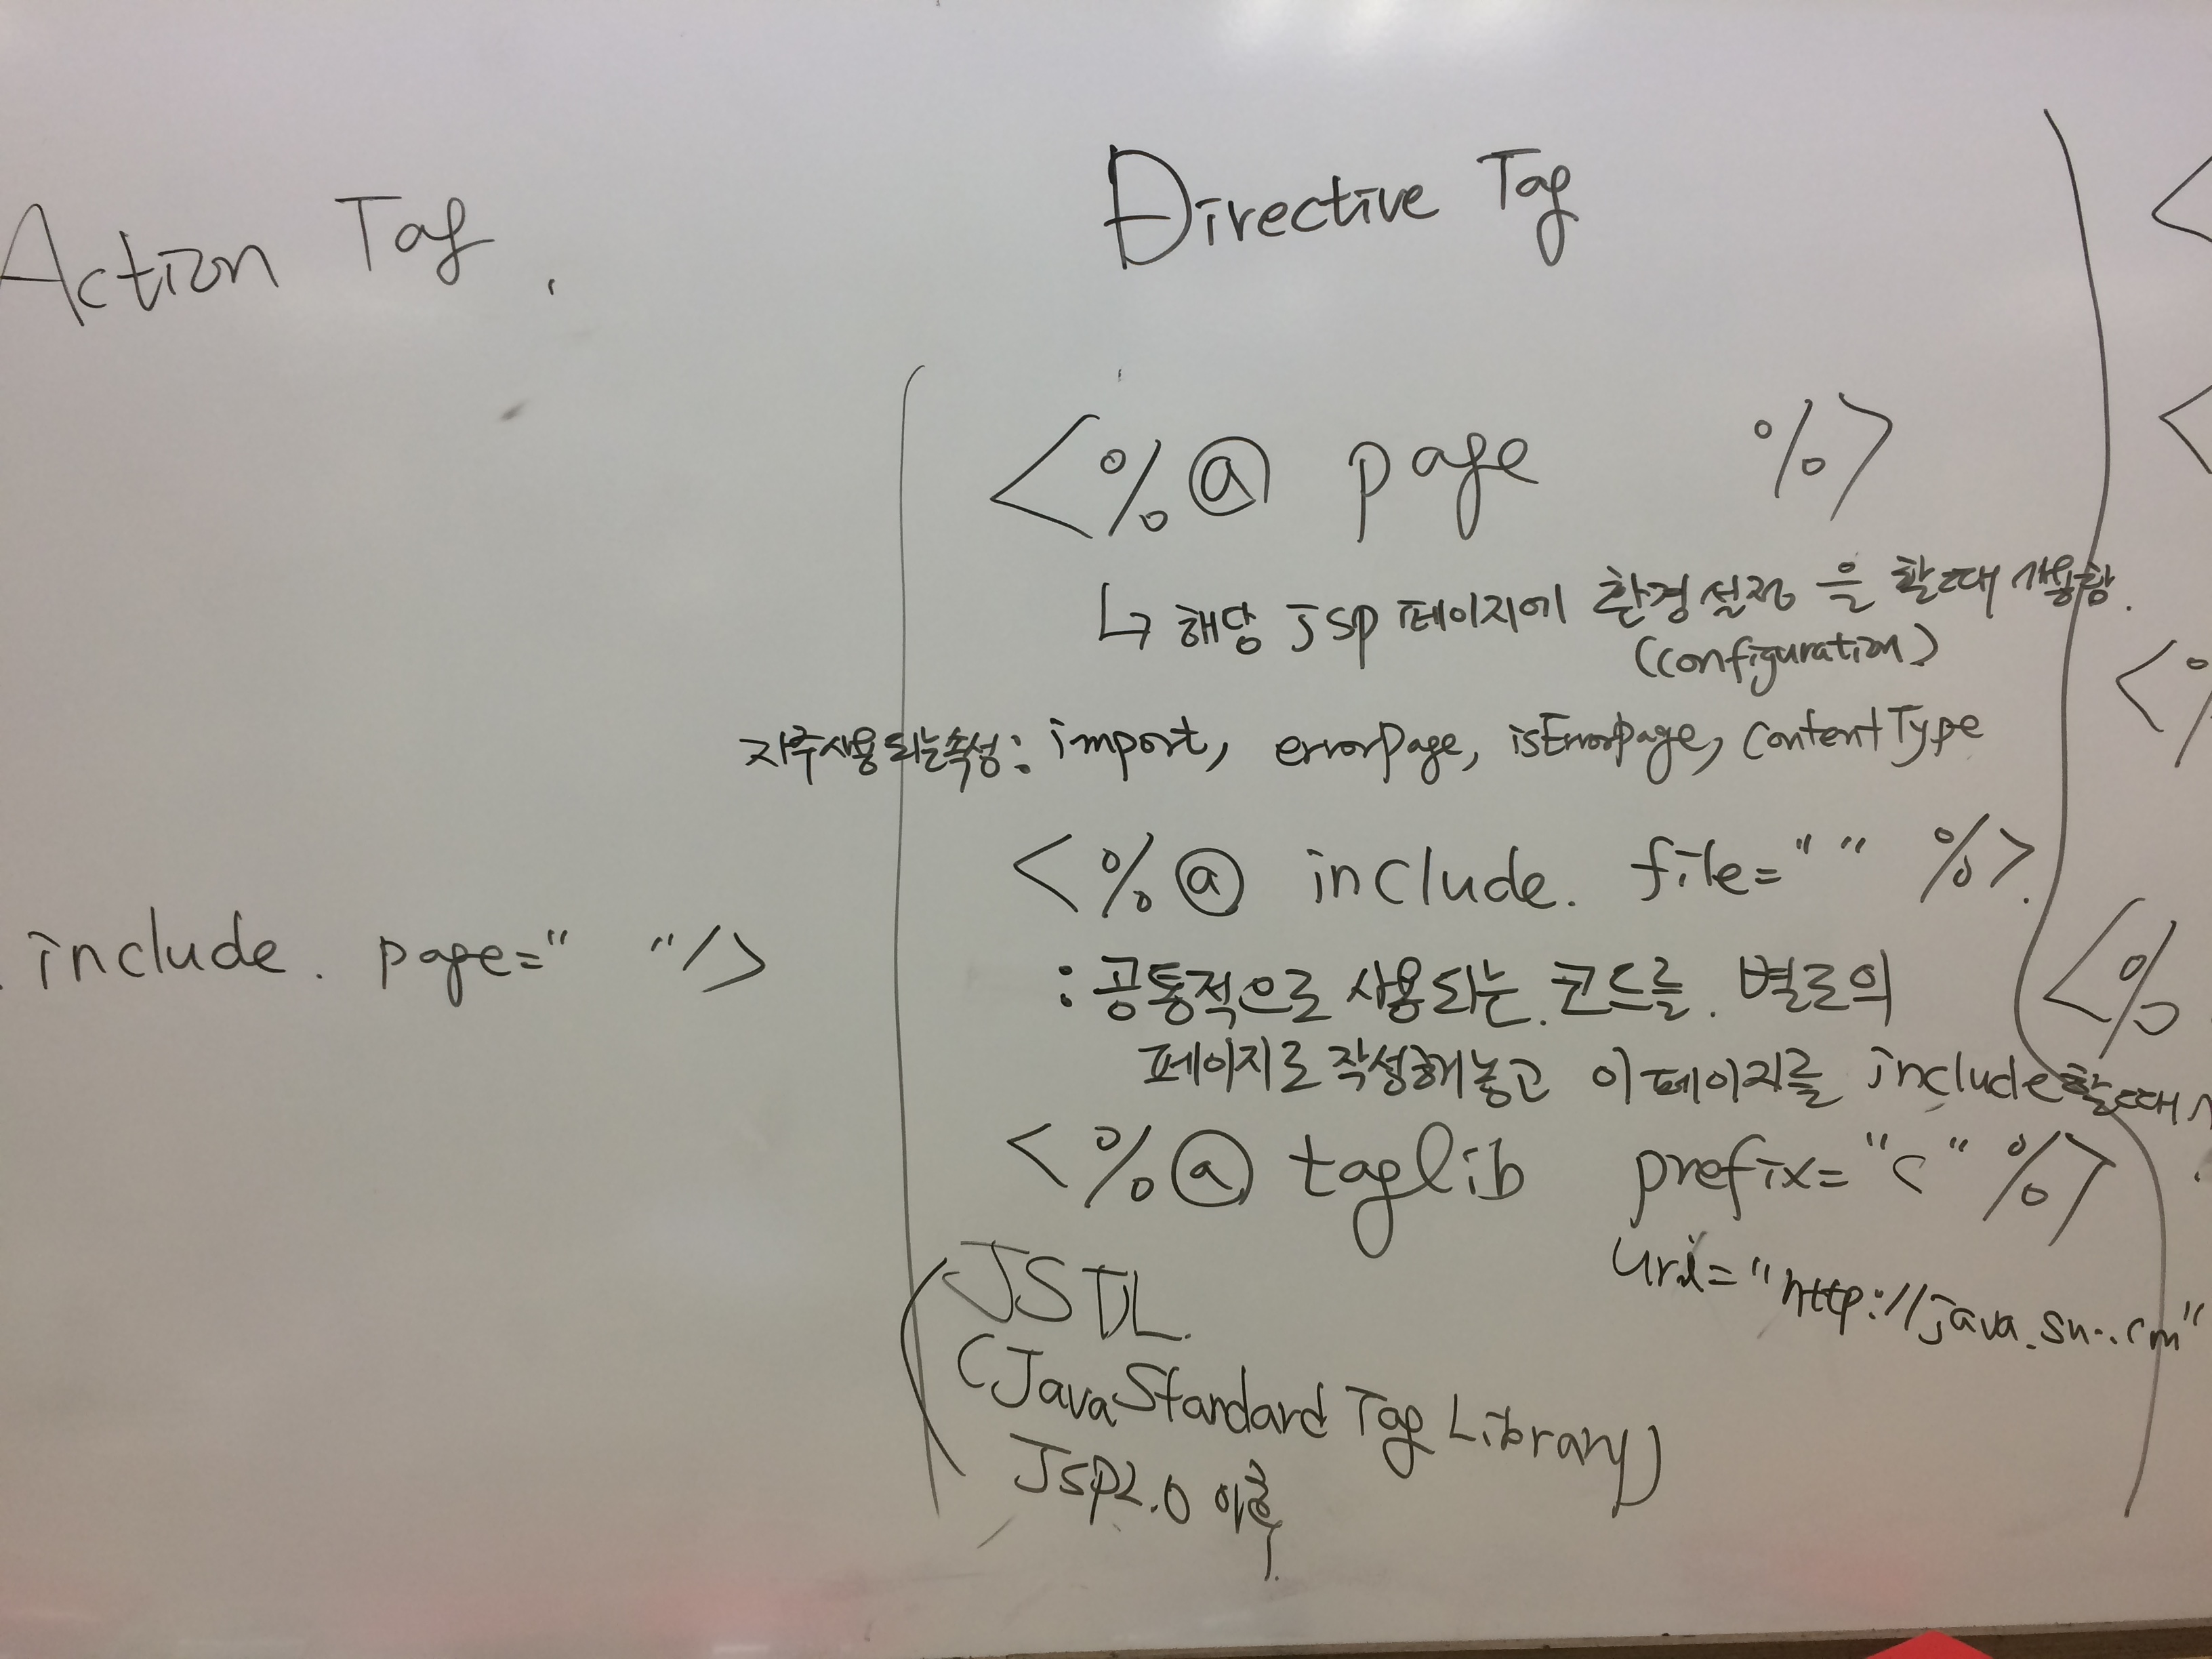 Action Tag.
include. page=" "/>
Directive Tag
<%@ page %>
↳ 해당 JSP 페이지에 환경설정을 할때 사용함.
(configuration)
자주사용되는속성: import, errorpage, isErrorpage, contentType
<%@ include. file=" " %>.
: 공통적으로 사용되는. 코드를. 별도의
페이지로 작성해놓고 이 페이지를 include할때
<%@ taglib prefix="c" %>
uri="http://java.su..com"
JSTL.
(Java Standard Tag Library)
JSP2.0 이후
<
<
<%
<%